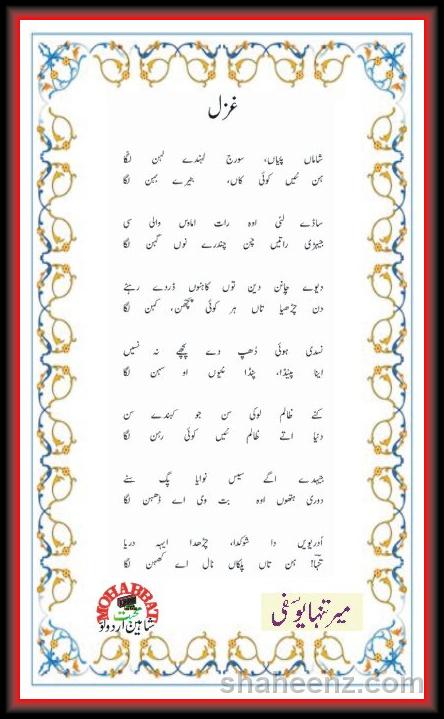 غزل
شاماں پیّاں، سورج لہندے لہن لگا
ہن نئیں کوئی کاں، بنیرے بہن لگا
ساڈے لئی اوہ رات اماوس والی سی
جیہڑی راتیں چن چندرے نوں گہن لگا
دیوے چانن دین توں کاہنوں ڈردے رہئے
دن چڑھیا تاں ہر کوئی پچھن، کہن لگا
نسدی ہوئی دُھپ دے پچھے نہ نسیں
اینا پینڈا، پنڈا کیوں او سہن لگا
کنے ظالم لوکی سن جو کہندے سن
دنیا اتے ظالم نئیں کوئی رہن لگا
جیہدے اگے سیس نوایا پگ سنے
دوری ہتھوں اوہ بت وی اے ڈھہن لگا
اُدریویں دا شوکدا، چڑھدا ایہہ دریا
تنہاؔ! ہن تاں پلکاں نال اے کھہن لگا
میر تنہا یوسفی
MOHABBAT
محبت
شاہین اردو لو
shaheenz.com